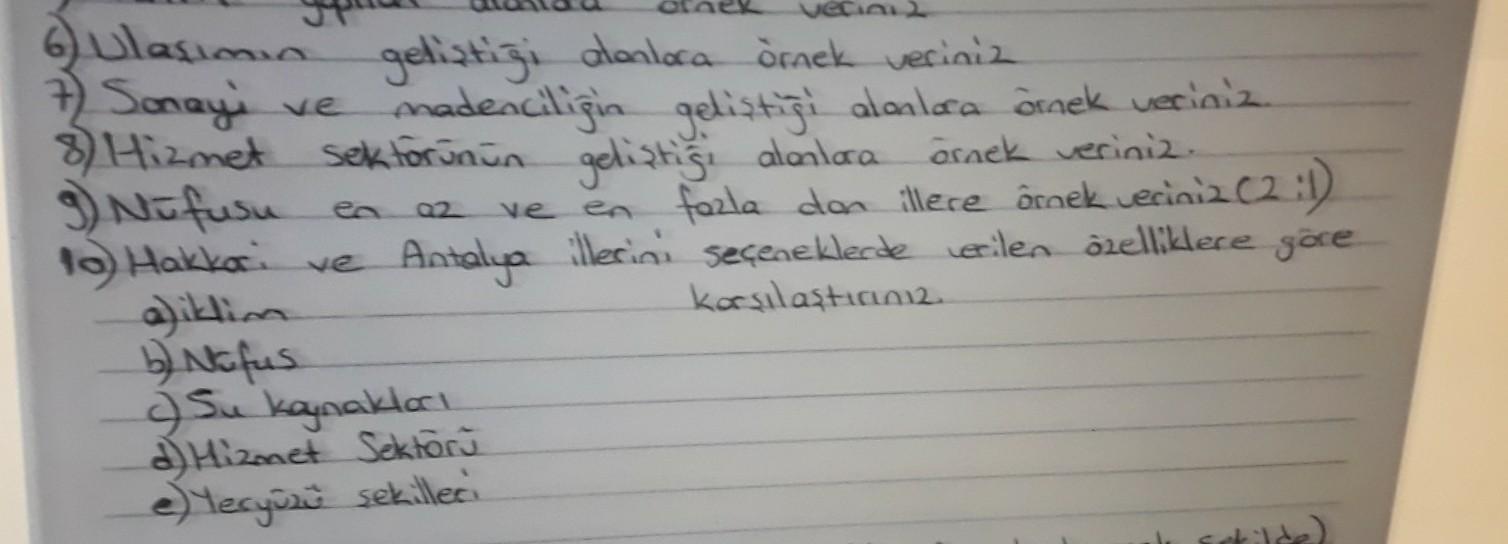 örnek veriniz
6) Ulaşımın geliştiği alanlara örnek veriniz
7) Sanayi ve madenciliğin geliştiği alanlara örnek veriniz.
8) Hizmet sektörünün geliştiği alanlara örnek veriniz.
9) Nüfusu en az ve en fazla olan illere örnek veriniz (2 il)
10) Hakkari ve Antalya illerini seçeneklerde verilen özelliklere göre
karşılaştırınız.
a) iklim
b) Nüfus
c) Su kaynakları
d) Hizmet Sektörü
e) Yeryüzü şekilleri
şekilde)